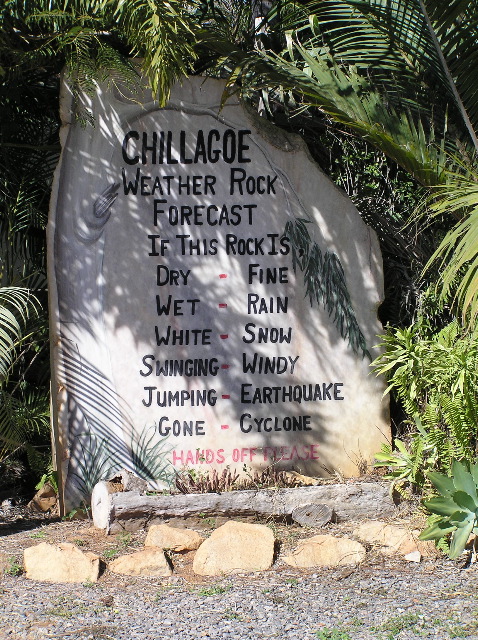 CHILLAGOE
WEATHER ROCK
FORECAST
IF THIS ROCK IS,
DRY - FINE
WET - RAIN
WHITE - SNOW
SWINGING - WINDY
JUMPING - EARTHQUAKE
GONE - CYCLONE
HANDS OFF PLEASE